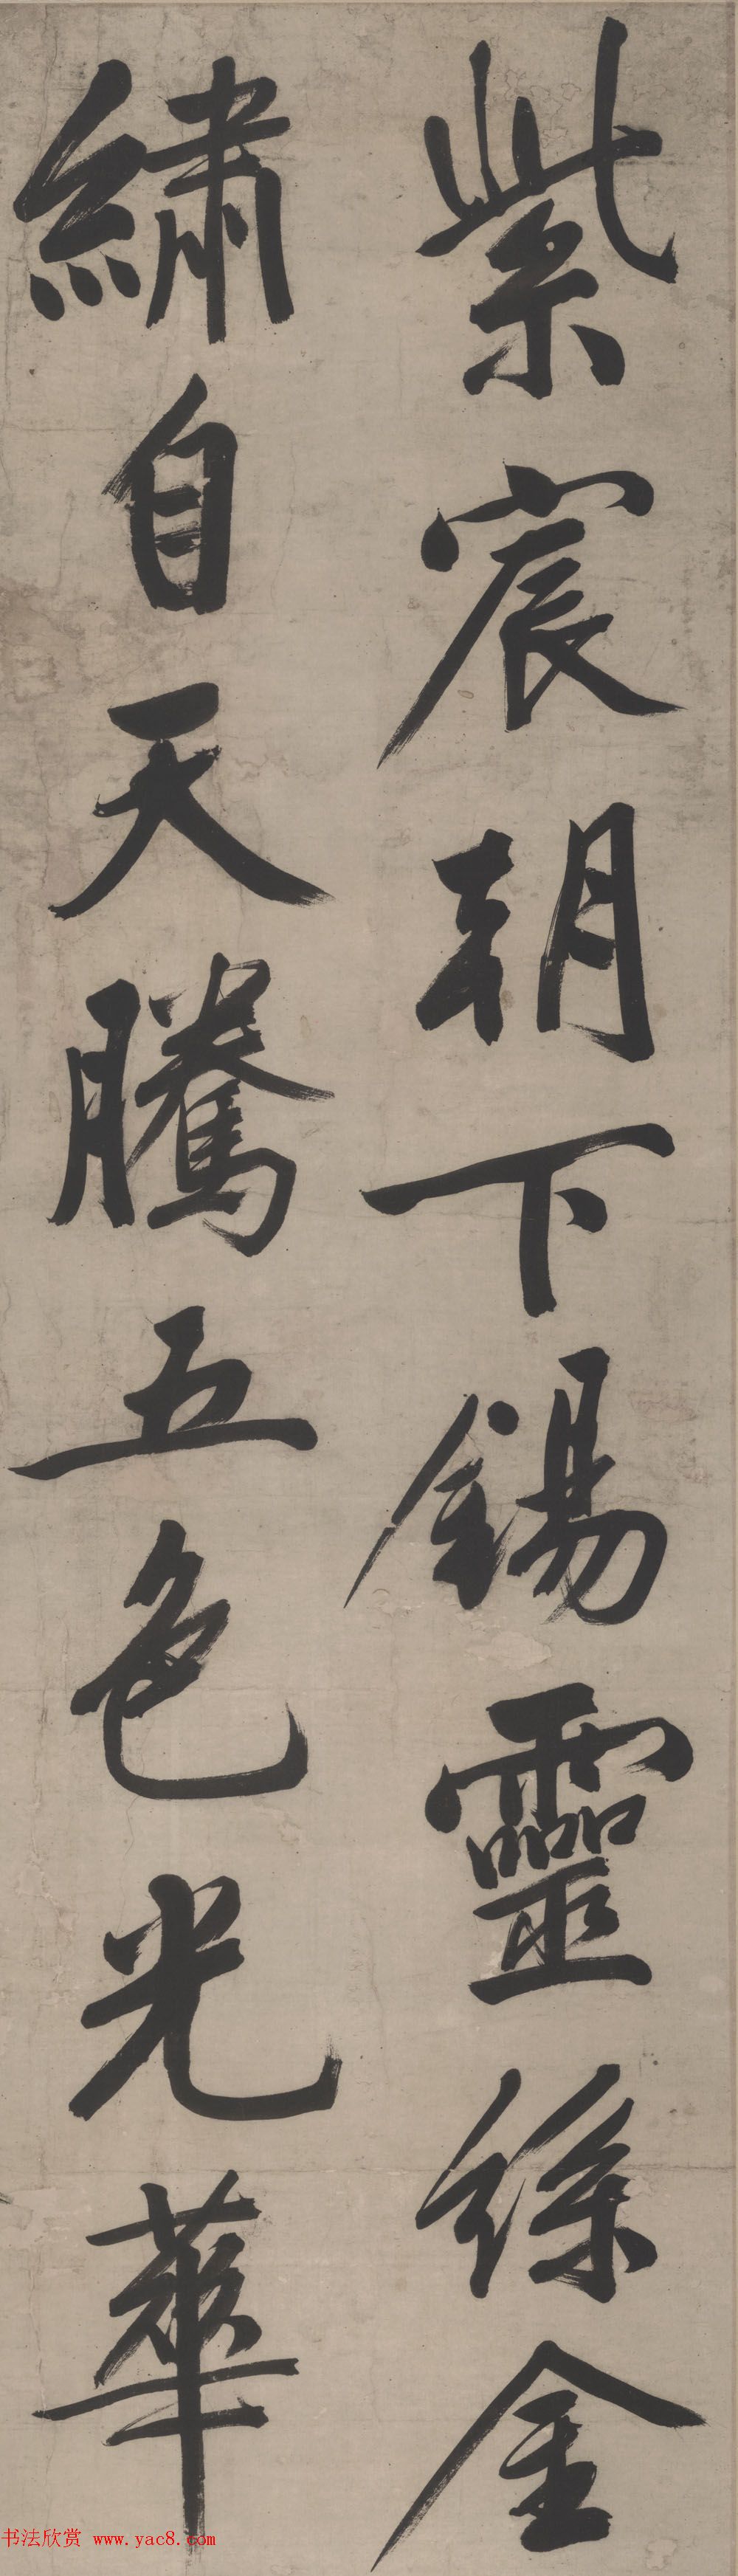 紫宸朝下錫靈絲金
繡自天騰五色光華
书法欣赏 www.yac8.com